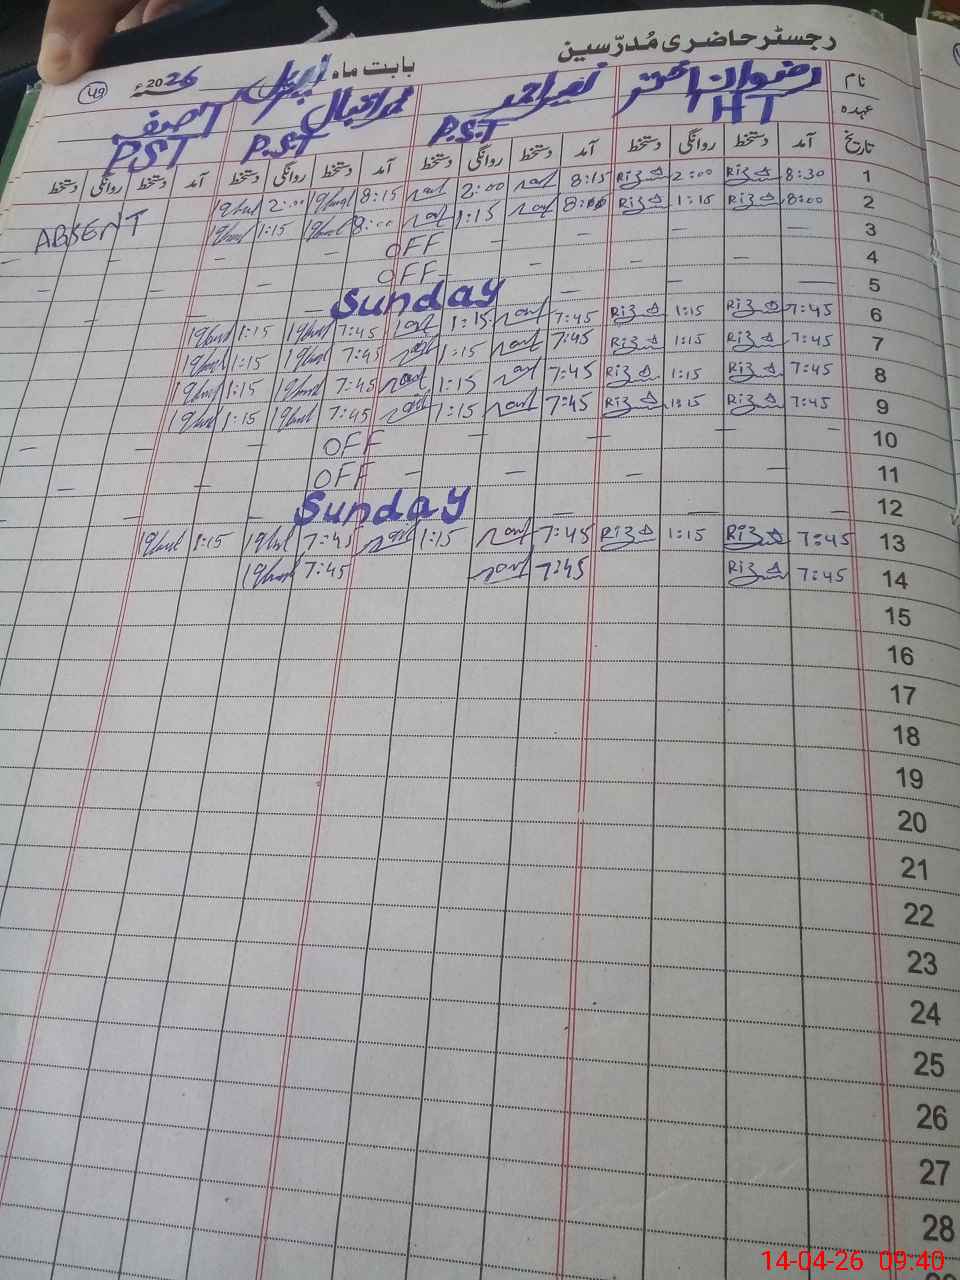 رجسٹر حاضری مُدرّسین
بابت ماہ اپریل 2026ء
49
نام رضوان اختر نصیر احمد محمد اقبال آصف
عہدہ HT P.S.T P.S.T PST
تاریخ آمد دستخط روانگی دستخط آمد دستخط روانگی دستخط آمد دستخط روانگی دستخط آمد دستخط روانگی دستخط
1 8:30 Riz 2:00 Riz 8:15 2:00 8:15 Iqbal 2:00 Iqbal
ABSENT
2 8:00 Riz 1:15 Riz 8:00 1:15 8:00 Iqbal 1:15 Iqbal
3 — — — — — OFF — — —
4 — — — — OFF — — —
5 — — — Sunday — —
6 7:45 Riz 1:15 Riz 7:45 1:15 7:45 Iqbal 1:15 Iqbal
7 7:45 Riz 1:15 Riz 7:45 1:15 7:45 Iqbal 1:15 Iqbal
8 7:45 Riz 1:15 Riz 7:45 1:15 7:45 Iqbal 1:15 Iqbal
9 7:45 Riz 1:15 Riz 7:45 1:15 7:45 Iqbal 1:15 Iqbal
10 — — — — OFF — — —
11 — — — — OFF — —
12 — — Sunday — —
13 7:45 Riz 1:15 Riz 7:45 1:15 7:45 Iqbal 1:15 Iqbal
14 7:45 Riz 7:45 7:45 Iqbal
15
16
17
18
19
20
21
22
23
24
25
26
27
28
14-04-26 09:40